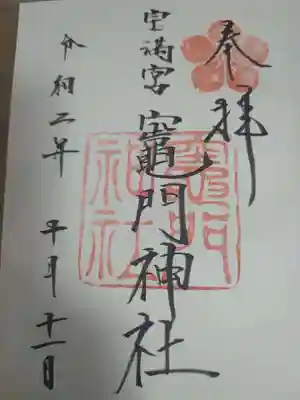 奉拝
宝満宮
竈門神社
令和二年 月十一日
竈門
神社